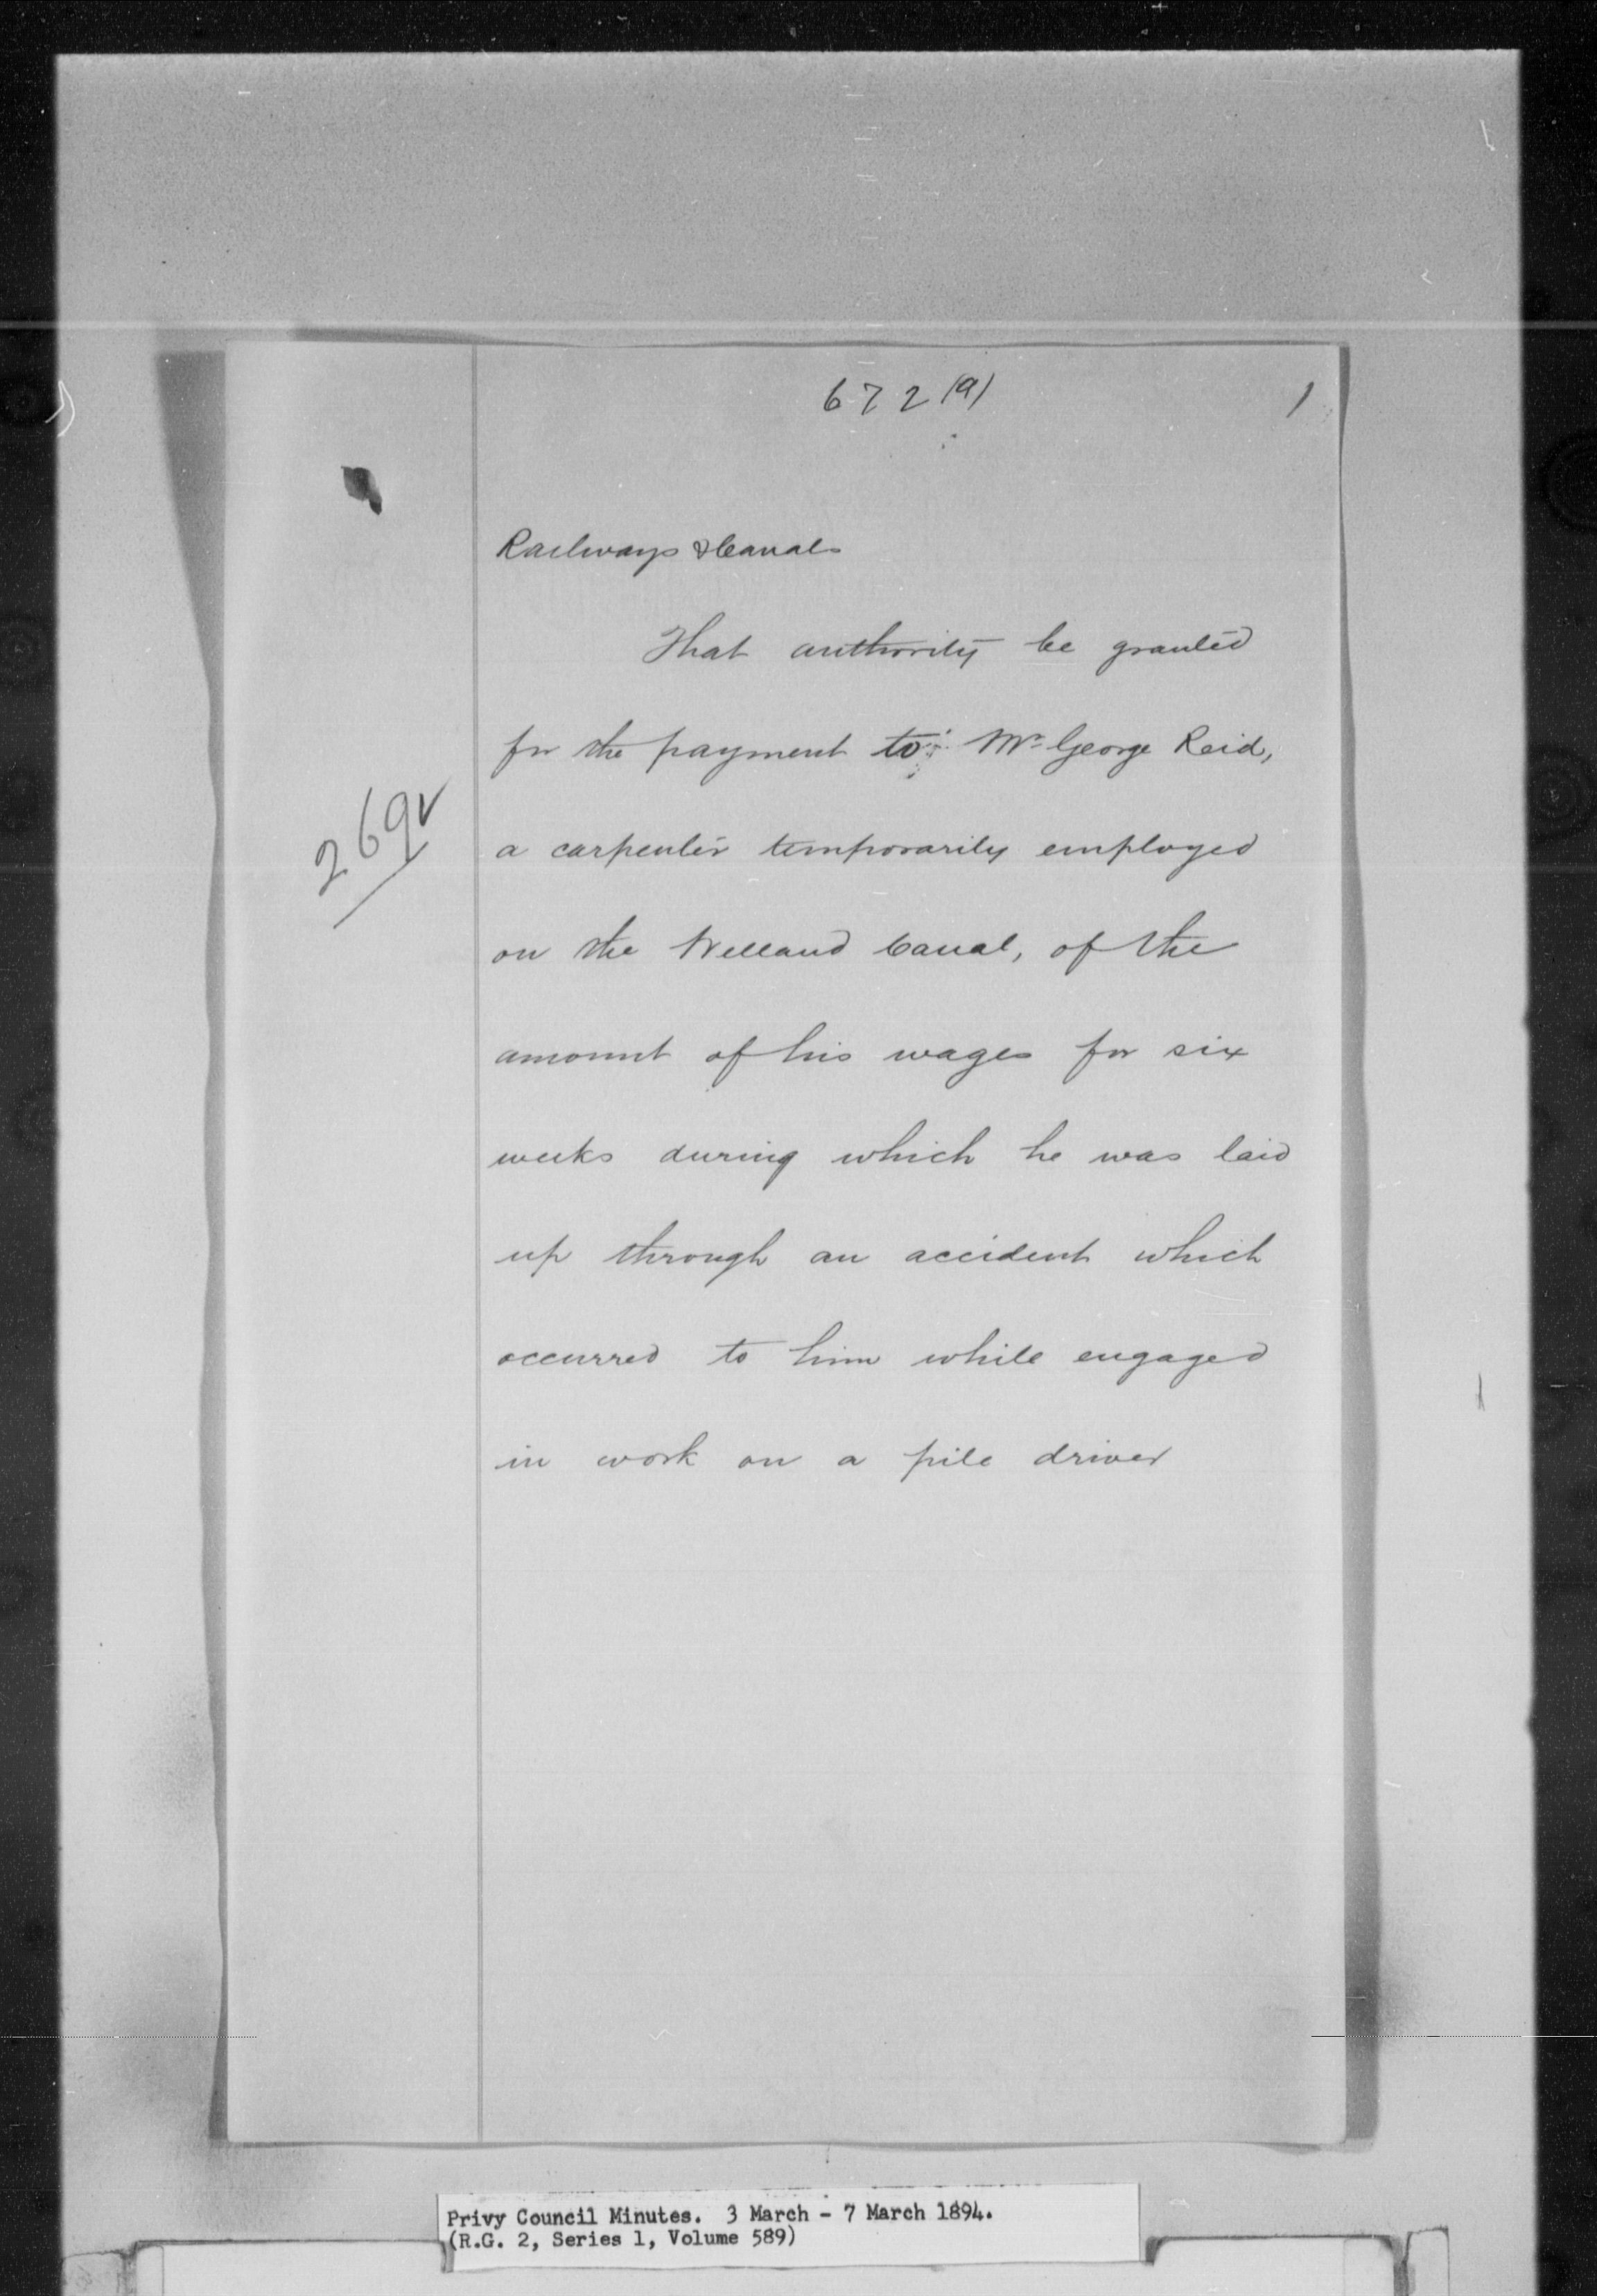 672(a) 1
Railways & Canals
That authority be granted
for the payment to Mr George Reid,
a carpenter temporarily employed
269
on the Welland Canal, of the
amount of his wages for six
weeks during which he was laid
up through an accident which
occurred to him while engaged
in work on a pile driver
Privy Council Minutes. 3 March - 7 March 1894.
(R.G. 2, Series 1, Volume 589)